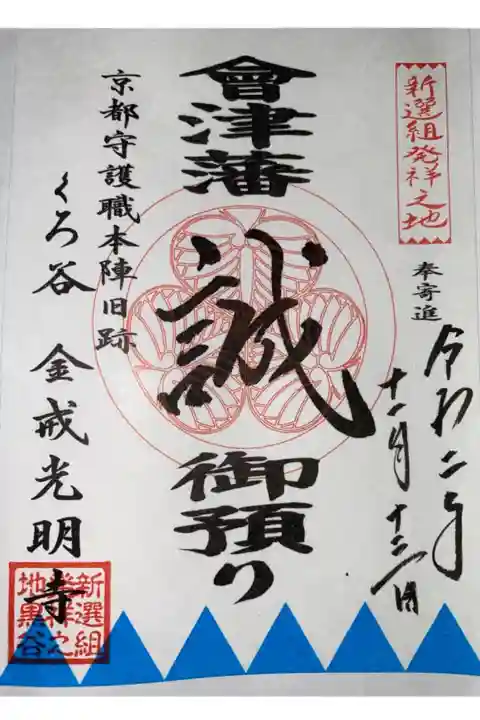 新選組発祥之地
奉寄進
令和二年
十一月十三日
會津藩
誠
御預り
京都守護職本陣旧跡
くろ谷 金戒光明寺
新選組
発祥之
地黒谷